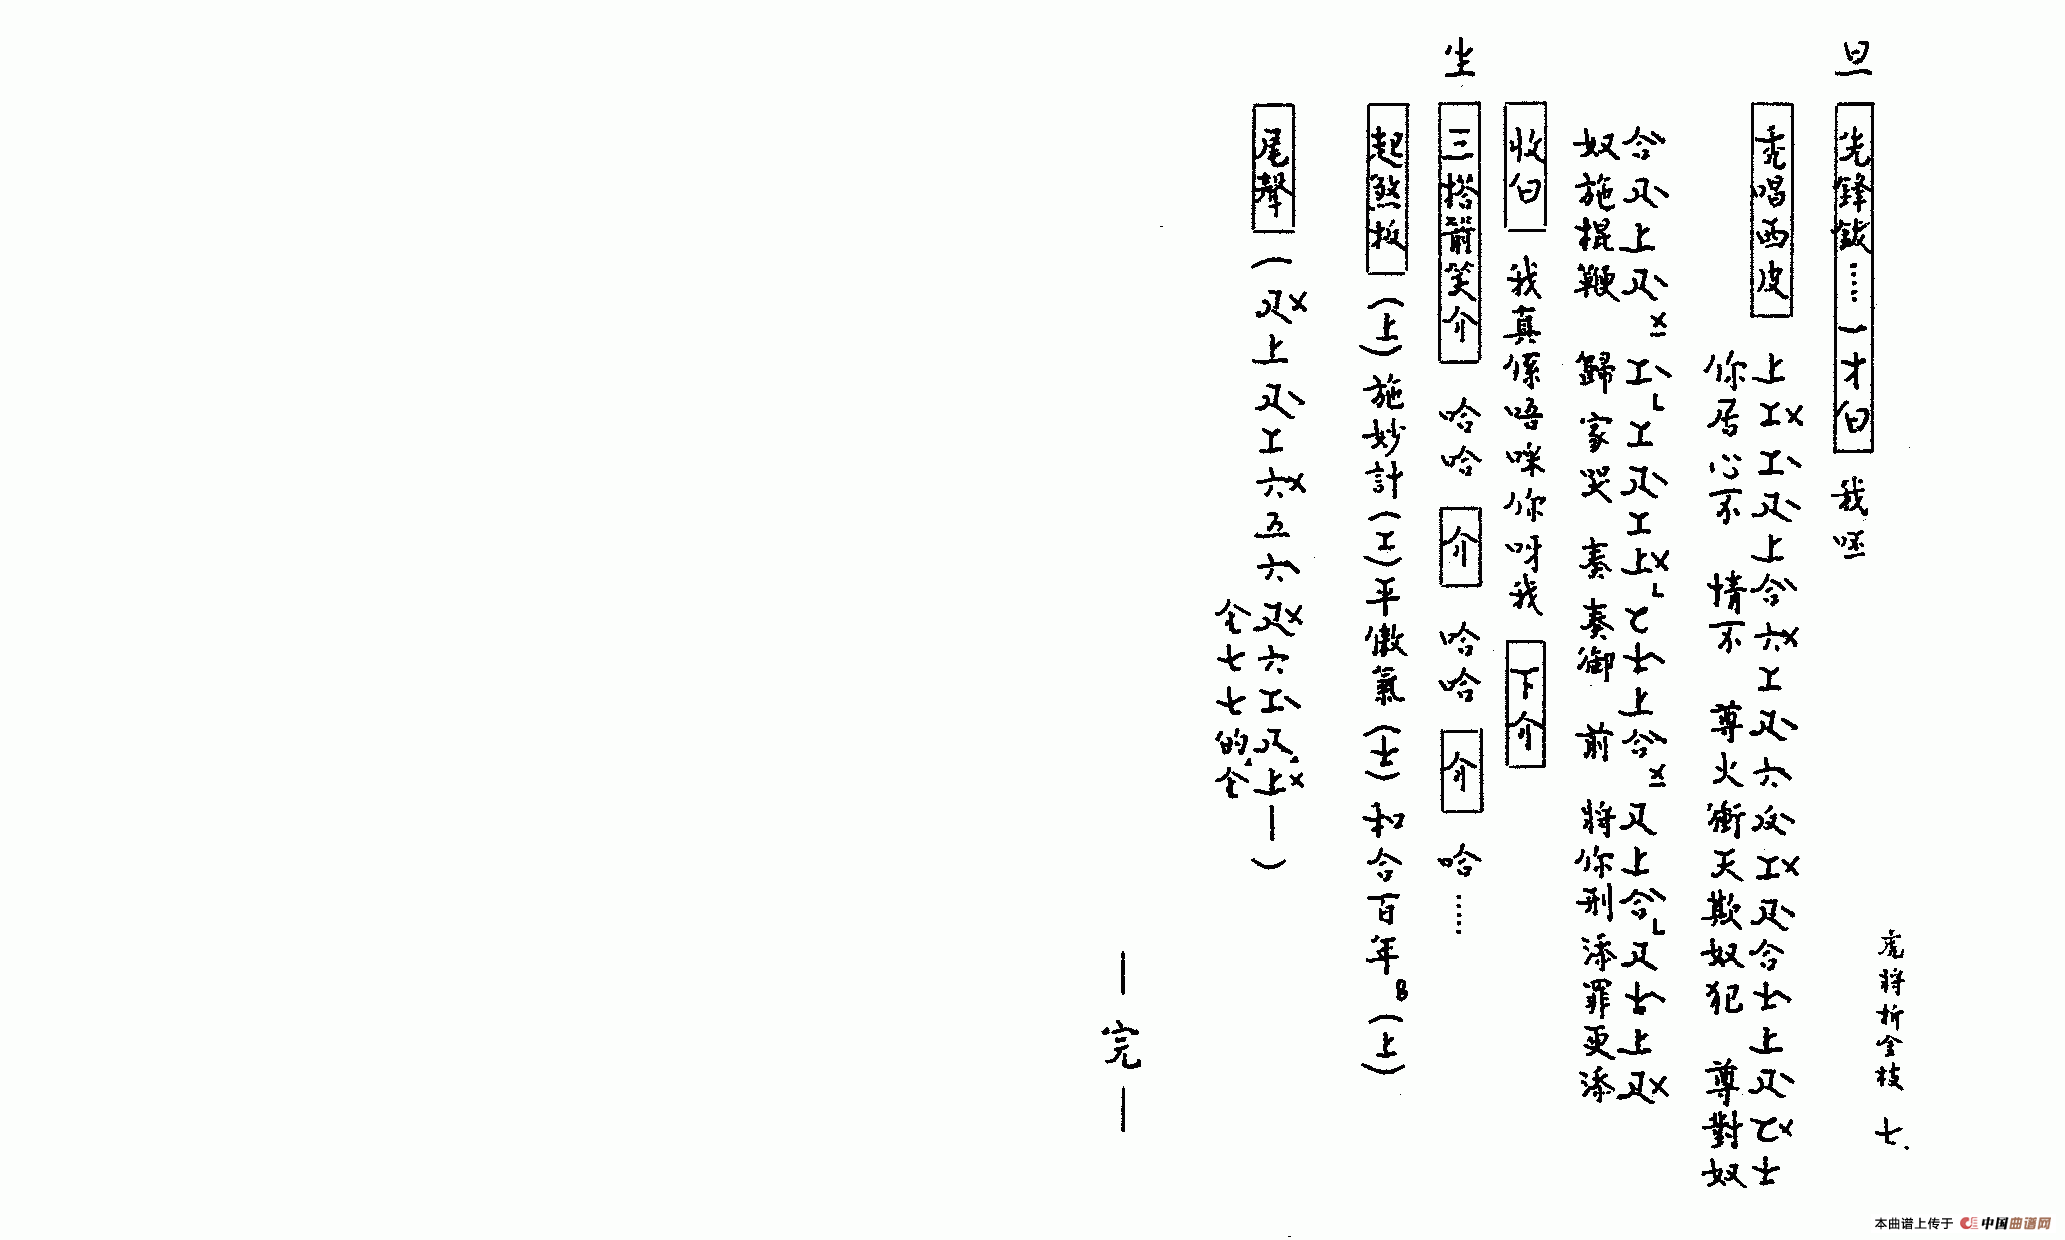 虎將折金枝 七.
旦 先鋒鈸……一才白 我呸
禿唱西皮
上工工尺上合六工尺六反工尺合士上尺乙士
你居心不情不尊火衝天欺奴犯尊對奴
合尺上尺工工尺工上乙士上合尺上合尺士上尺
奴施棍鞭歸家哭奏奏御前將你刑添罪更添
收白 我真係唔咪你呀我 下介
坐 三搭箭笑介 哈哈 介 哈哈 介 哈……
起煞板 (上)施妙計(工)平傲氣(士)和合百年(上)
尾聲 (尺上尺工六五六尺六工尺上—)
仝七七的仝
—完—
本曲谱上传于 中国曲谱网